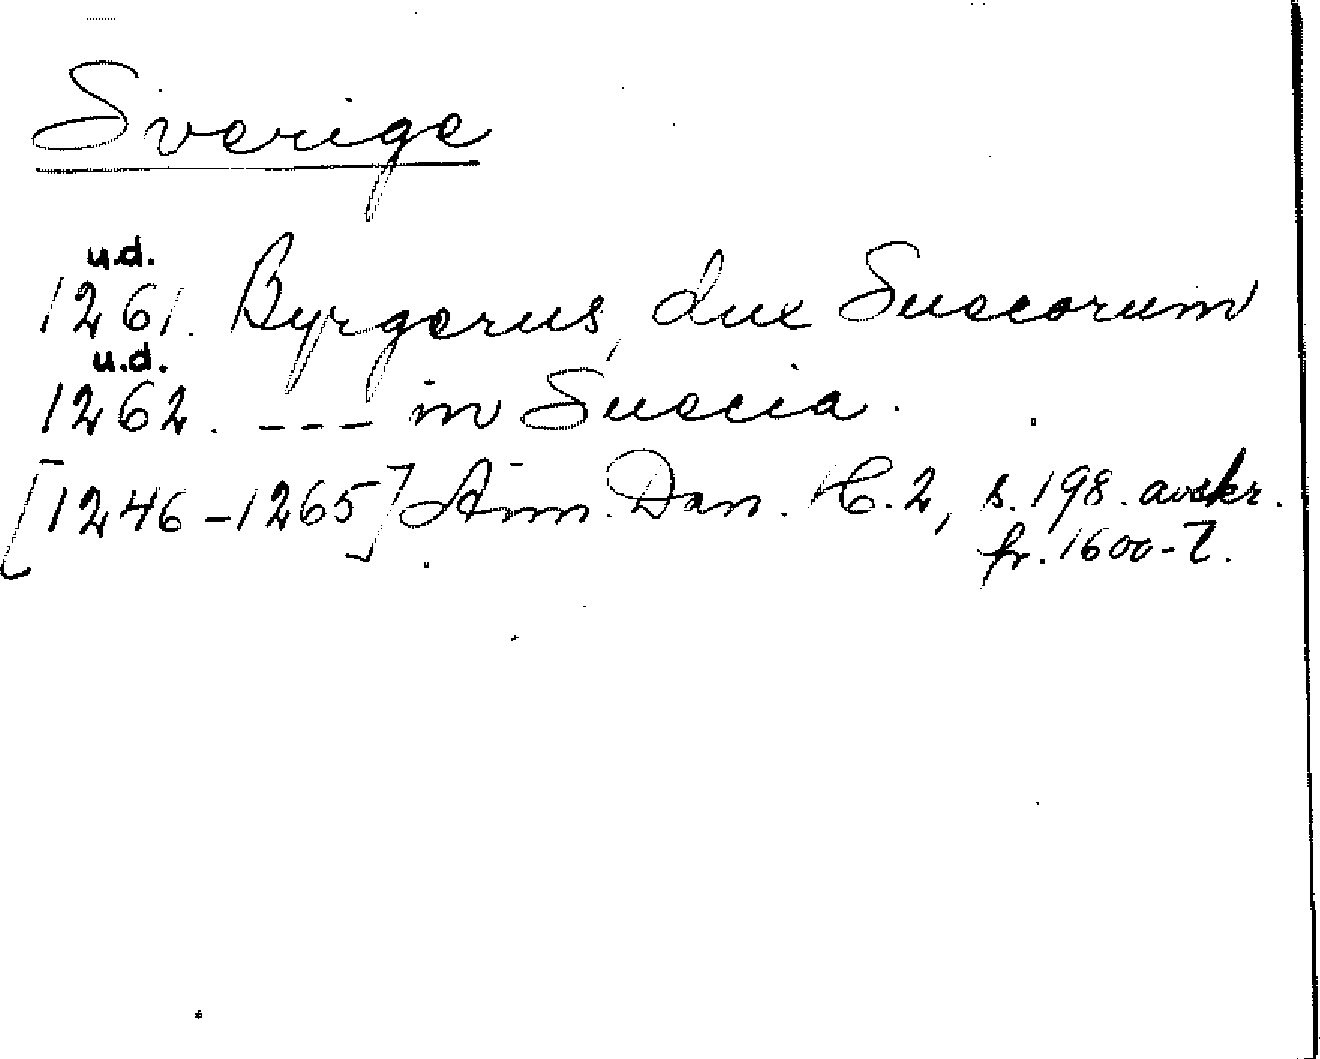 Sverige
u.d.
1261. Byrgerus, dux Sueorum
u.d.
1262. --- in Suecia.
[1246-1265] Ann. Dan. H. 2, s. 198. avskr.
fr. 1600-t.